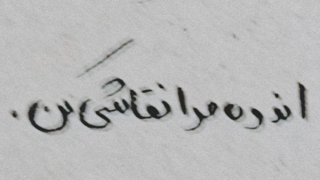 اندوه مرا نقاشی کن.